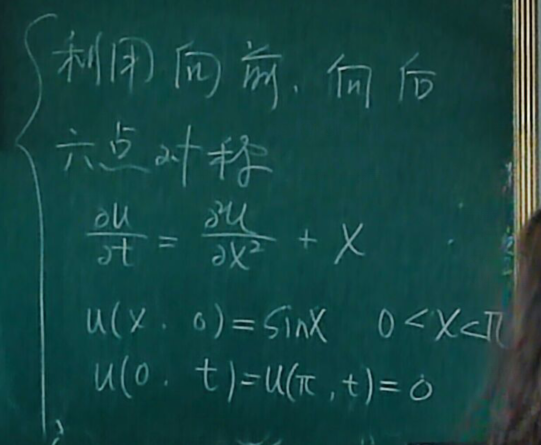 利用向前、向后
六点对称
∂u/∂t = ∂²u/∂x² + x
u(x, 0) = sinx 0<x<π
u(0, t) = u(π, t) = 0